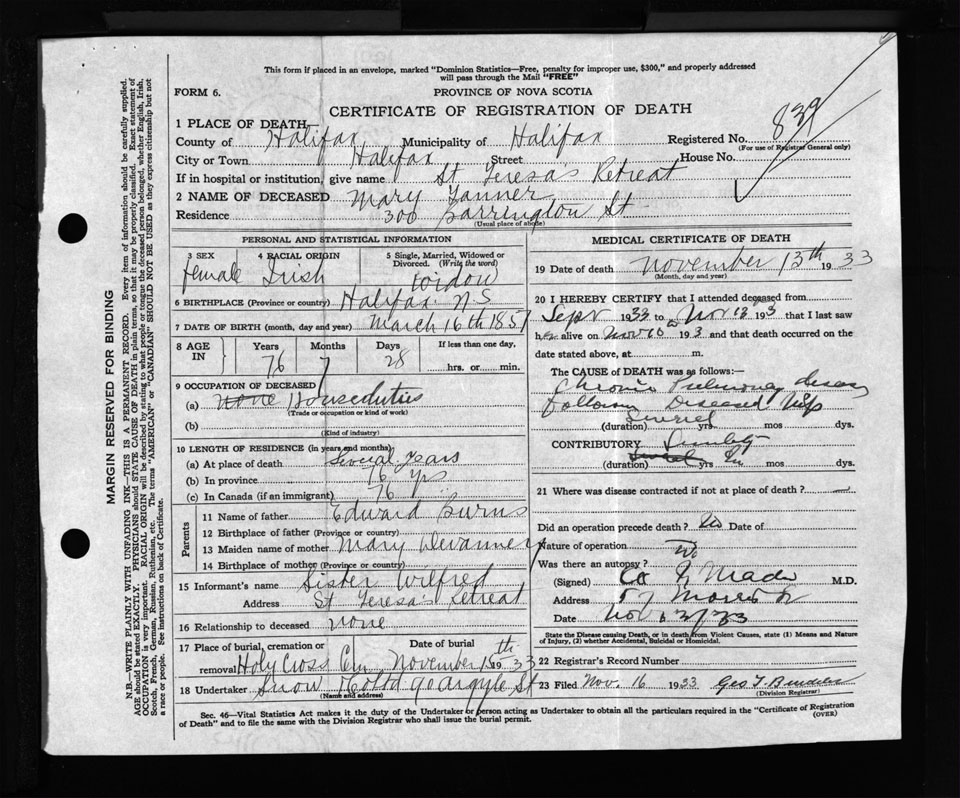 This form if placed in an envelope, marked "Dominion Statistics—Free, penalty for improper use, $300," and properly addressed
will pass through the Mail "FREE"
FORM 6.
PROVINCE OF NOVA SCOTIA
CERTIFICATE OF REGISTRATION OF DEATH
839
1 PLACE OF DEATH—
County of Halifax Municipality of Halifax Registered No.
(For use of Registrar General only)
City or Town Halifax Street House No.
If in hospital or institution, give name St Teresa's Retreat
2 NAME OF DECEASED Mary Tanner
Residence 300 Barrington St
(Usual place of abode)
PERSONAL AND STATISTICAL INFORMATION
3 SEX 4 RACIAL ORIGIN 5 Single, Married, Widowed or Divorced. (Write the word)
female Irish widow
6 BIRTHPLACE (Province or country) Halifax N S
7 DATE OF BIRTH (month, day and year) March 16th 1857
8 AGE IN Years Months Days If less than one day,
76 7 28 hrs. or min.
9 OCCUPATION OF DECEASED
(a) none Houseduties
(Trade or occupation or kind of work)
(b)
(Kind of industry)
10 LENGTH OF RESIDENCE (in years and months)
(a) At place of death Several years
(b) In province 76 yrs
(c) In Canada (if an immigrant) 76
Parents
11 Name of father Edward Burns
12 Birthplace of father (Province or country)
13 Maiden name of mother Mary Devanney
14 Birthplace of mother (Province or country)
15 Informant's name Sister Wilfred
Address St Teresa's Retreat
16 Relationship to deceased none
17 Place of burial, cremation or removal Date of burial
Holy Cross Cem November 15th 1933
18 Undertaker Snow 90 Argyle St
(Name and address)
MEDICAL CERTIFICATE OF DEATH
19 Date of death November 13th 1933
(Month, day and year)
20 I HEREBY CERTIFY that I attended deceased from
Sept 1933 to Nov 13 193 that I last saw
her alive on Nov 193 and that death occurred on the
date stated above, at m.
The CAUSE of DEATH was as follows:—
Chronic Pulmonary
following Diseased Hip
(duration) yrs. mos dys.
CONTRIBUTORY
(duration) yrs mos dys.
21 Where was disease contracted if not at place of death?
Did an operation precede death? No Date of
Nature of operation
Was there an autopsy? No
(Signed) M.D.
Address 57 Morris St
Date Nov 13/33
State the Disease causing Death, or in death from Violent Causes, state (1) Means and Nature
of Injury, (2) whether Accidental, Suicidal or Homicidal.
22 Registrar's Record Number
23 Filed Nov. 16 1933 Geo T.
(Division Registrar)
Sec. 46—Vital Statistics Act makes it the duty of the Undertaker or person acting as Undertaker to obtain all the particulars required in the "Certificate of Registration
of Death" and to file the same with the Division Registrar who shall issue the burial permit.
(OVER)
MARGIN RESERVED FOR BINDING
N.B.—WRITE PLAINLY WITH UNFADING INK—THIS IS A PERMANENT RECORD. Every item of information should be carefully supplied.
AGE should be stated EXACTLY. PHYSICIANS should STATE CAUSE OF DEATH in plain terms, so that it may be properly classified. Exact statement of
OCCUPATION is very important. RACIAL ORIGIN will be described by stating to what people or tongue the deceased person belonged, whether English, Irish,
Scotch, French, German, Russian, Ruthenian, etc. The terms "AMERICAN" or "CANADIAN" SHOULD NOT BE USED as they express citizenship but not
a race or people. See instructions on back of Certificate.